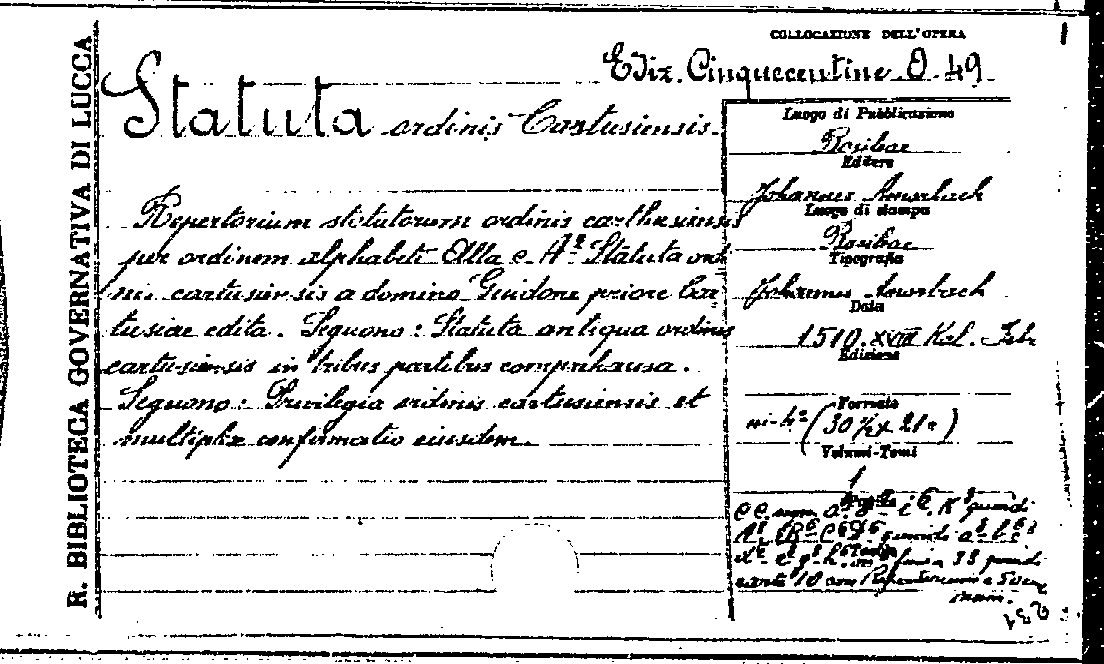 R. BIBLIOTECA GOVERNATIVA DI LUCCA
COLLOCAZIONE DELL'OPERA
Ediz. Cinquecentine O. 49
Statuta ordinis Cartusiensis.
Repertorium statutorum ordinis carthusiensis
per ordinem alphabeti. Alla c. A² Statuta ordi
nis cartusiensis a domino Guidone priore Car
tusiae edita. Seguono: Statuta antiqua ordinis
cartusiensis in tribus partibus comprehausa.
Seguono: Privilegia ordinis cartusiensis et
multiplex confirmatio eiusdem.
Luogo di Pubblicazione
Basilae
Editore
Johannes Amerbach
Luogo di stampa
Basilae
Tipografia
Johannes Amerbach
Data
1510. XVIII Kal. Febr
Edizione
Formato
in-4° (30½ x 21)
Volumi-Tomi
1
cc. segn. quindi
quindi
fino a 33 quindi
carte 10 con Repertorium e
num.
231